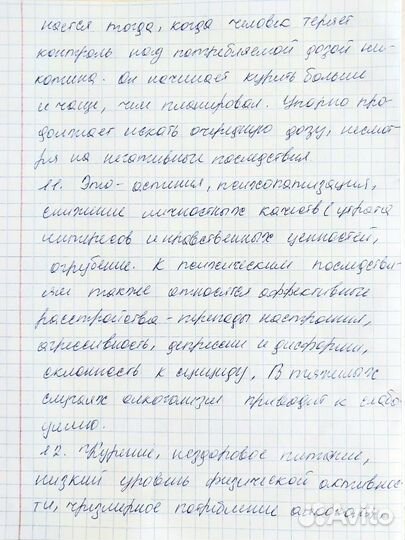 нается тогда, когда человек теряет
контроль над потребляемой дозой ни-
котина. Он начинает курить больше
и чаще, чем планировал. Упорно про-
должает искать очередную дозу, несмот-
ря на негативные последствия.
11. Это - астения, психопатизация,
снижение личностных качеств (утрата
интересов и нравственных ценностей,
огрубение. К психическим последстви-
ям также относятся аффективные
расстройства - перепады настроения,
агрессивность, депрессии и дисфории,
склонность к суициду. В тяжелых
случаях алкоголизм приводит к слабо-
умию.
12. Курение, нездоровое питание,
низкий уровень физической активнос-
ти, чрезмерное потребление алкоголя,
Avito